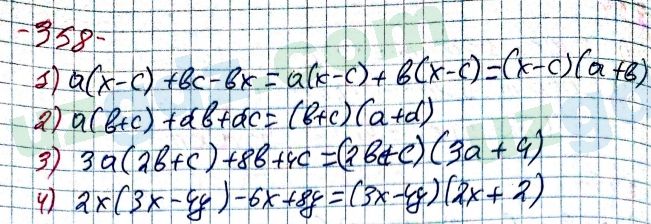 -358-
1) a(x-c)+bc-bx=a(x-c)+b(x-c)=(x-c)(a+b)
2) a(b+c)+db+dc=(b+c)(a+d)
3) 3a(2b+c)+8b+4c=(2b+c)(3a+4)
4) 2x(3x-4y)-6x+8y=(3x-4y)(2x+2)